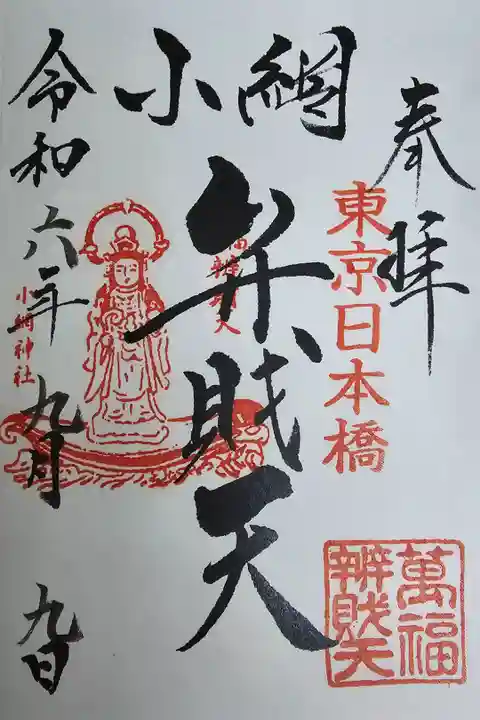 奉拝
東京日本橋
萬福
辨戝天
小網
弁財天
令和六年九月九日
小網神社